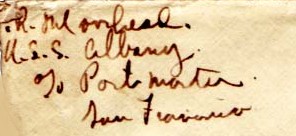 R. Morhead.
U.S.S. Albany.
c/o Post master.
San Francisco